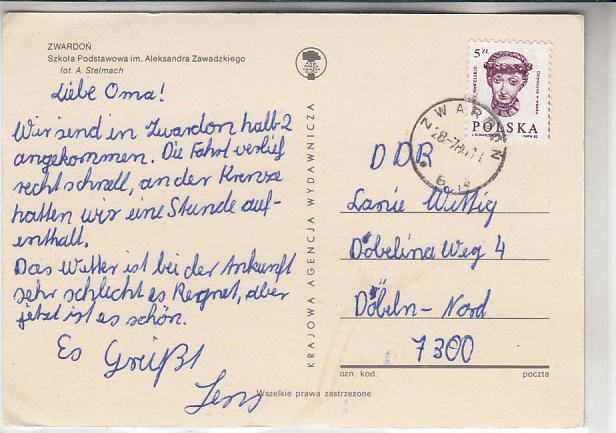 ZWARDOŃ
Szkoła Podstawowa im. Aleksandra Zawadzkiego
fot. A. Stelmach
Liebe Oma!
Wir send in Zwardon halb 2
angekommen. Die Fahrt verlief
recht schnell, an der Krenze
hatten wir eine Stunde auf-
enthalt.
Das Wetter ist bei der Ankunft
sehr schlecht es Regnet, aber
jetzt ist es schön.
Es Grüßt
Jens
KRAJOWA AGENCJA WYDAWNICZA
5 ZŁ
POLSKA
ZWARDOŃ
DDR
Wittig
Döbelina Weg 4
Döbeln-Nord
7300
ozn. kod.
poczta
Wszelkie prawa zastrzeżone